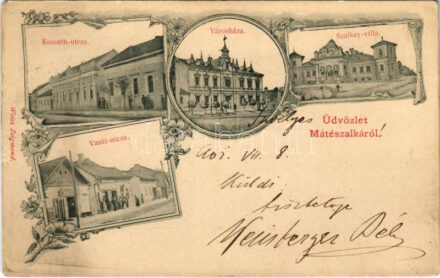 Kossuth-utcza.
Városháza.
Szalkay-villa.
Vasút-utcza.
Weisz Zsigmond.
Üdvözlet
Mátészalkáról!
901. VII. 8.
Küldi
tisztelője
Weisberger Béla